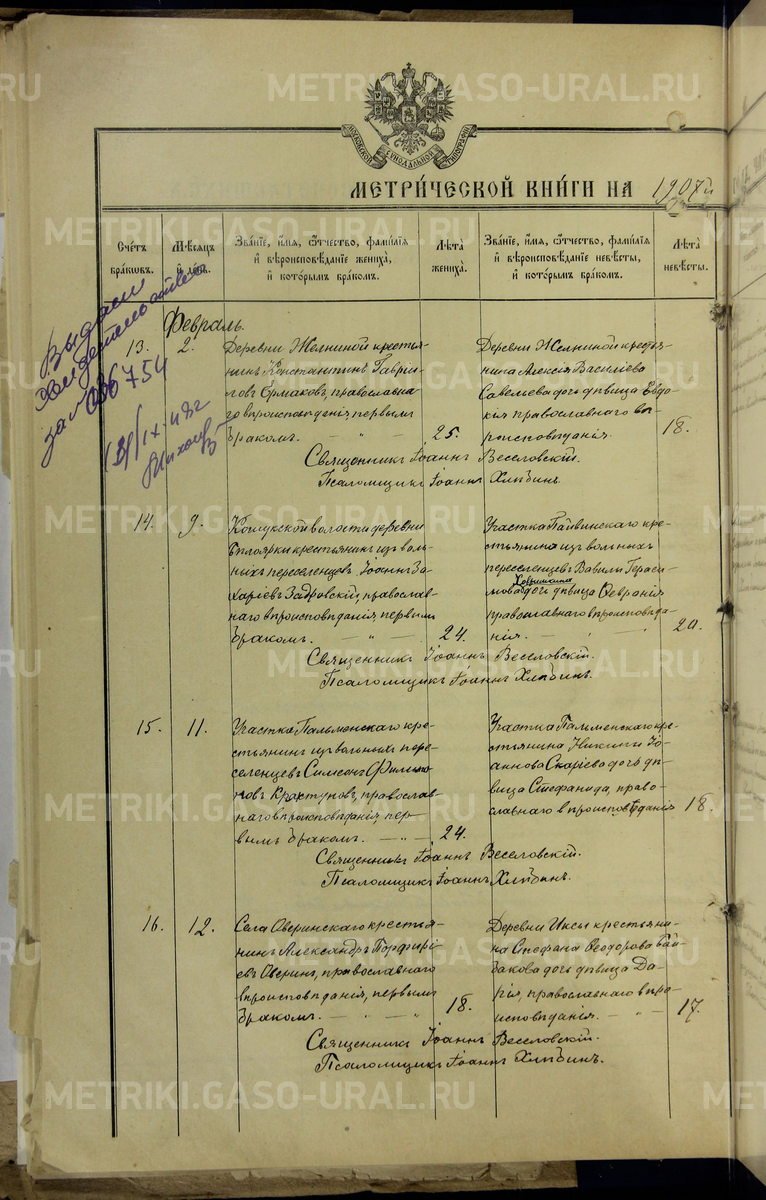 METRIKI.GASO-URAL.RU
МОСКОВСКОЙ СѴНОДАЛЬНОЙ ТИПОГРАФІИ
МЕТРИ́ЧЕСКОЙ КНИ́ГИ НА 1907 й
Сче́тъ бра́ковъ.
Мѣ́сяцъ и҆ день.
Зва́нїе, и҆́мя, ѻ҆́тчество, фами́лїя и҆ вѣроисповѣ́данїе жениха̀, и҆ кото́рымъ бра́комъ.
Лѣ́та жениха̀.
Зва́нїе, и҆́мя, ѻ҆́тчество, фами́лїя и҆ вѣроисповѣ́данїе невѣ́сты, и҆ кото́рымъ бра́комъ.
Лѣ́та невѣ́сты.
Выдано
свидетельство
за № 036754
Февраль.
13.
2.
Деревни Желниной крестья-
нинъ Константинъ Гаврии-
ловъ Ермаковъ, православна-
го вѣроисповѣданія первымъ
бракомъ. — " —
25.
Деревни Желниной крестья-
нина Алексія Василіева
Савелиева дочь дѣвица Евдо-
кія православнаго вѣ-
роисповѣданія.
18.
Священникъ Іоаннъ Веселовскій.
Псаломщикъ Іоаннъ Хлѣбинъ.
14.
9.
волости деревни
крестьянинъ изъ воль-
ныхъ переселенцевъ Іоаннъ За-
харіевъ Задровскій, православ-
наго вѣроисповѣданія, первымъ
бракомъ. — " —
24.
Участка Пайвинскаго кре-
стьянина изъ вольныхъ
переселенцевъ Вавилы Гераси-
мова дочь дѣвица Февранія
православнаго вѣроисповѣда-
нія. — " —
20.
Священникъ Іоаннъ Веселовскій.
Псаломщикъ Іоаннъ Хлѣбинъ.
15.
11.
Участка Пальменскаго кре-
стьянинъ изъ вольныхъ пере-
селенцевъ Симеонъ Филимо-
новъ Крахтуновъ, православ-
наго вѣроисповѣданія, пер-
вымъ бракомъ. — " —
24.
Участка Пальменскаго кре-
стьянина Никиты Іо-
аннова Скаріева дочь дѣ-
вица Стефанида, право-
славнаго вѣроисповѣданія
18.
Священникъ Іоаннъ Веселовскій.
Псаломщикъ Іоаннъ Хлѣбинъ.
16.
12.
Села Оверинскаго крестья-
нинъ Александръ Порфирі-
евъ Оверинъ, православнаго
вѣроисповѣданія, первымъ
бракомъ. — " —
18.
Деревни Иксы крестьяни-
на Стефана Ѳеодорова Бай-
бакова дочь дѣвица Да-
рія, православнаго вѣро-
исповѣданія. — " —
17.
Священникъ Іоаннъ Веселовскій.
Псаломщикъ Іоаннъ Хлѣбинъ.